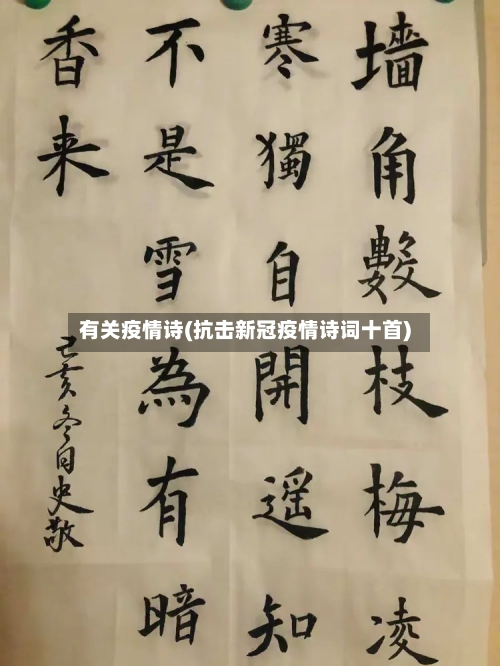 墙角數枝梅凌
寒獨自開遥知
不是雪為有暗
香来
己亥冬日史敬
有关疫情诗(抗击新冠疫情诗词十首)